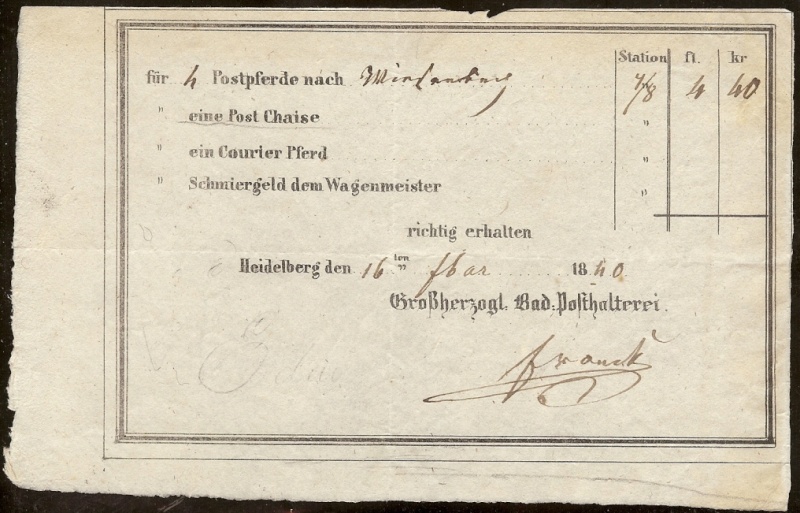 Station fl. kr
für 4 Postpferde nach 7/8 4 40
" eine Post Chaise "
" ein Courier Pferd "
" Schmiergeld dem Wagenmeister "
richtig erhalten
Heidelberg den 16ten 1840
Großherzogl. Bad. Posthalterei.
Franck